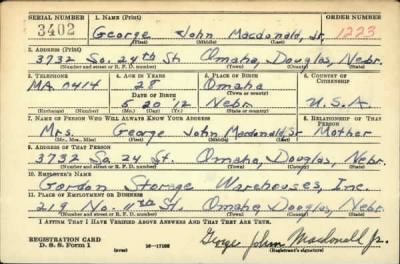 SERIAL NUMBER 1. NAME (Print) ORDER NUMBER
3402 George John Macdonald, Jr. 1223
(First) (Middle) (Last)
2. ADDRESS (Print)
3732 So. 24th St. Omaha, Douglas, Nebr.
(Number and street or R. F. D. number) (Town) (County) (State)
3. TELEPHONE 4. AGE IN YEARS 5. PLACE OF BIRTH 6. COUNTRY OF CITIZENSHIP
MA 0414 28 Omaha
(Town or county)
DATE OF BIRTH
5 20 '12 Nebr. U.S.A.
(Exchange) (Number) (Mo.) (Day) (Yr.) (State or country)
7. NAME OF PERSON WHO WILL ALWAYS KNOW YOUR ADDRESS 8. RELATIONSHIP OF THAT PERSON
Mrs. George John Macdonald, Sr. Mother
(Mr., Mrs., Miss) (First) (Middle) (Last)
9. ADDRESS OF THAT PERSON
3732 So. 24 St. Omaha, Douglas, Nebr.
(Number and street or R. F. D. number) (Town) (County) (State)
10. EMPLOYER'S NAME
Gordon Storage Warehouses, Inc.
11. PLACE OF EMPLOYMENT OR BUSINESS
219 No. 11th St. Omaha, Douglas, Nebr.
(Number and street or R. F. D. number) (Town) (County) (State)
I AFFIRM THAT I HAVE VERIFIED ABOVE ANSWERS AND THAT THEY ARE TRUE.
REGISTRATION CARD
D. S. S. Form 1 (over) George John Macdonald Jr.
(Registrant's signature)